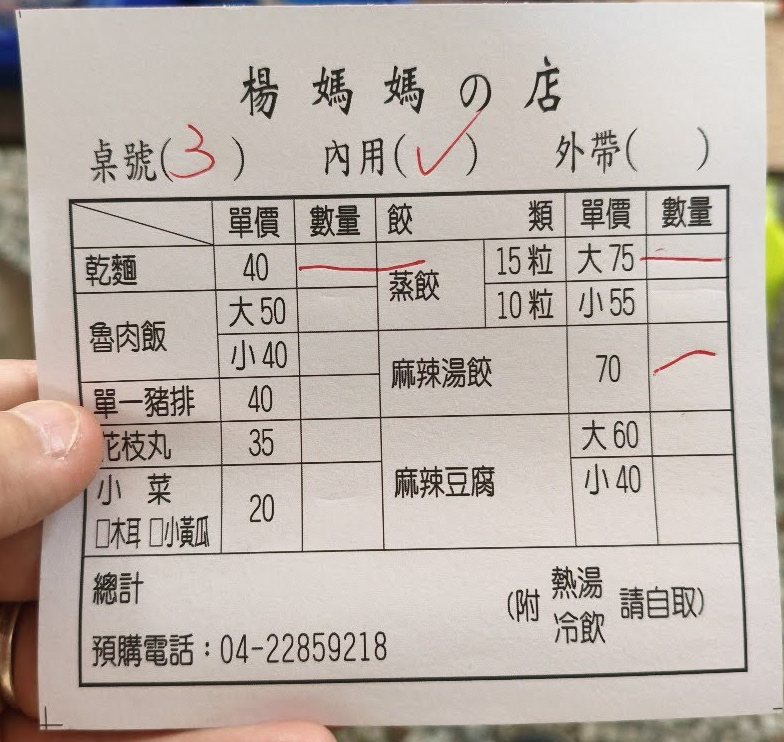 楊媽媽の店
桌號(3) 內用(✓) 外帶( )
單價 數量 餃類 單價 數量
乾麵 40 一 蒸餃 15粒 大75 一
10粒 小55
魯肉飯 大50
小40
麻辣湯餃 70 一
單一豬排 40
花枝丸 35
麻辣豆腐 大60
小40
小菜 20
□木耳 □小黃瓜
總計
(附 熱湯 冷飲 請自取)
預購電話：04-22859218